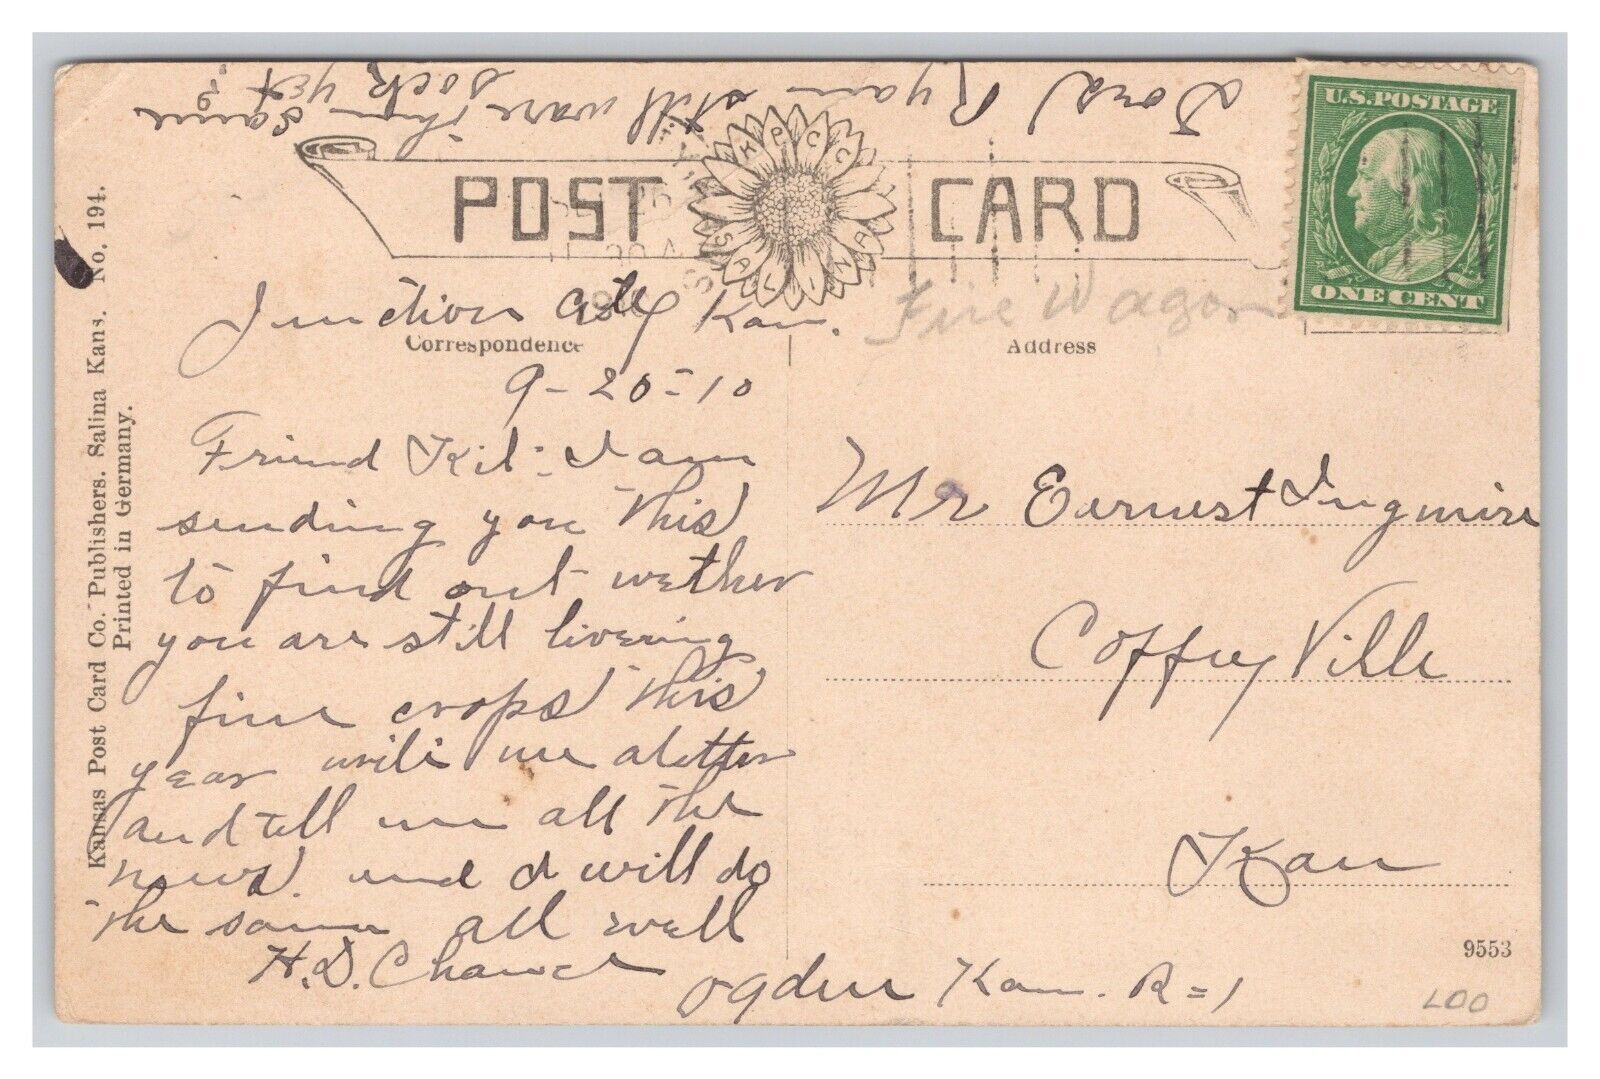 Does Ryan still ware them same
sock yet ?
U.S. POSTAGE
ONE CENT
POST CARD
KPCC
SALINA
Junction City Kan.
Fire Wagon
Correspondence
Address
9-20-10
Friend Kil: I am
sending you this
to find out wether
you are still livering
fine crops this
year write me a letter
and tell me all the
news and I will do
the same all well
H.D.
Ogden Kan. R=1
Mr Earnest Ingmire
CoffeyVille
Kan
9553
LOO
Kansas Post Card Co. Publishers. Salina Kans. No. 194.
Printed in Germany.